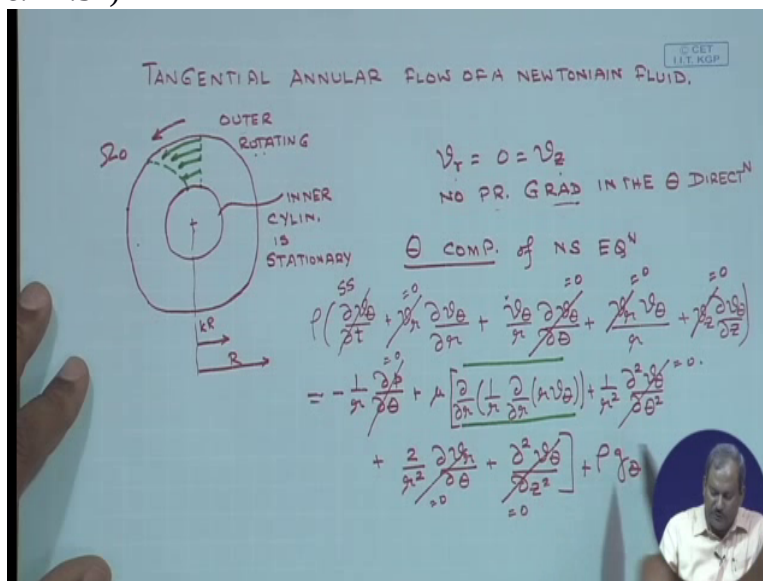 © CET
I.I.T. KGP
TANGENTIAL ANNULAR FLOW OF A NEWTONIAIN FLUID.
OUTER
ROTATING
Ω0
INNER
CYLIN.
IS
STATIONARY
kR
R
vr = 0 = vz
NO PR. GRAD IN THE θ DIRECTᴺ
θ COMP. of NS EQᴺ
SS =0 =0 =0 =0
ρ(∂vθ/∂t + vr ∂vθ/∂r + vθ/r ∂vθ/∂θ + vr vθ/r + vz ∂vθ/∂z)
= - 1/r ∂p/∂θ =0 + μ[∂/∂r(1/r ∂/∂r(r vθ)) + 1/r² ∂²vθ/∂θ² =0.
+ 2/r² ∂vr/∂θ =0 + ∂²vθ/∂z² =0] + ρgθ